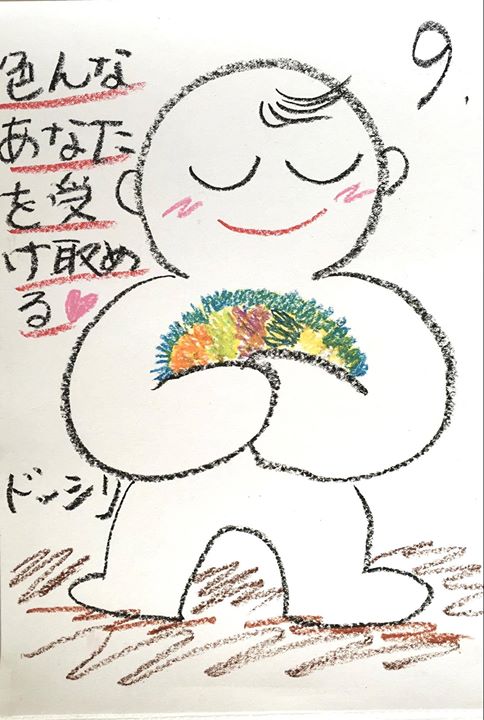 9.
色んな
あなた
を受
け取め
る
ドンシリ